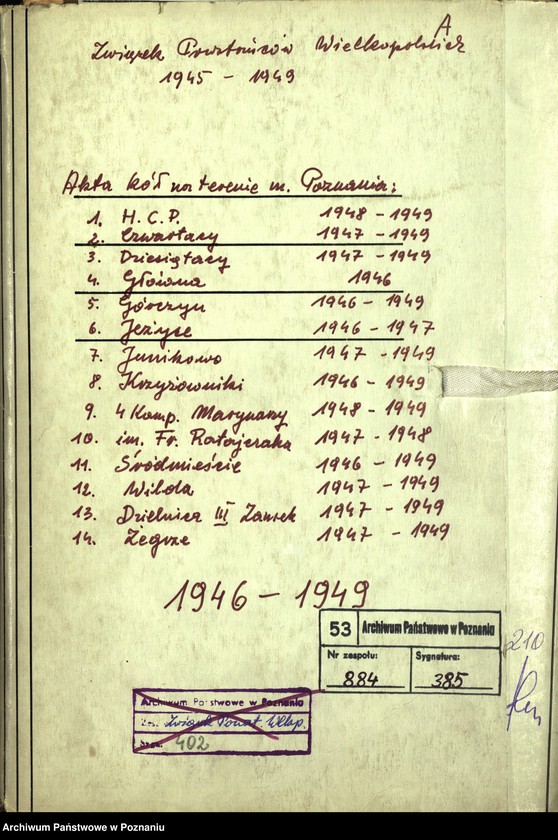 A
Związek Powstańców Wielkopolskich
1945 - 1949
Akta kół na terenie m. Poznania:
1. H.C.P. 1948 - 1949
2. Czwartacy 1947 - 1949
3. Dziesiątacy 1947 - 1949
4. Główna 1946
5. Górczyn 1946 - 1949
6. Jeżyce 1946 - 1947
7. Junikowo 1947 - 1949
8. Krzyżowniki 1946 - 1949
9. 4 Komp. Marynarzy 1948 - 1949
10. im. Fr. Ratajczaka 1947 - 1948
11. Śródmieście 1946 - 1949
12. Wilda 1947 - 1949
13. Dzielnica III Zawek 1947 - 1949
14. Żegrze 1947 - 1949
1946 - 1949
53 Archiwum Państwowe w Poznaniu
Nr zespołu: 884 Sygnatura: 385
210
Archiwum Państwowe w Poznaniu
Związek Powst. Wlkp.
402
Archiwum Państwowe w Poznaniu